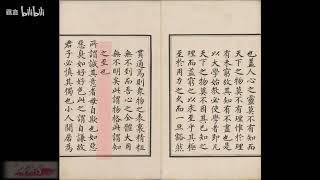 觀自 bilibili
也蓋人心之靈莫不有知而
天下之物莫不有理惟於理
有未窮故其知有不盡也是
以大學始教必使學者即凡
天下之物莫不因其已知之
理而益窮之以求至乎其極
至於用力之久而一旦豁然
貫通焉則衆物之表裏精粗
無不到而吾心之全體大用
無不明矣此謂物格此謂知
之至也
所謂誠其意者毋自欺也如惡
惡臭如好好色此之謂自謙故
君子必慎其獨也小人閒居為